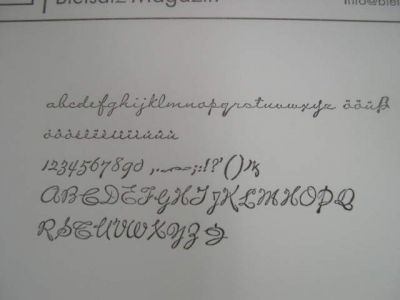 Bleisatz Magazin
info@blei
abcdefghijklmnopqrstuvwxyz äöüß
1234567890 ,.-—;:!?'()
ABCDEFGHIJKLMNOPQ
RSTUVWXYZ &